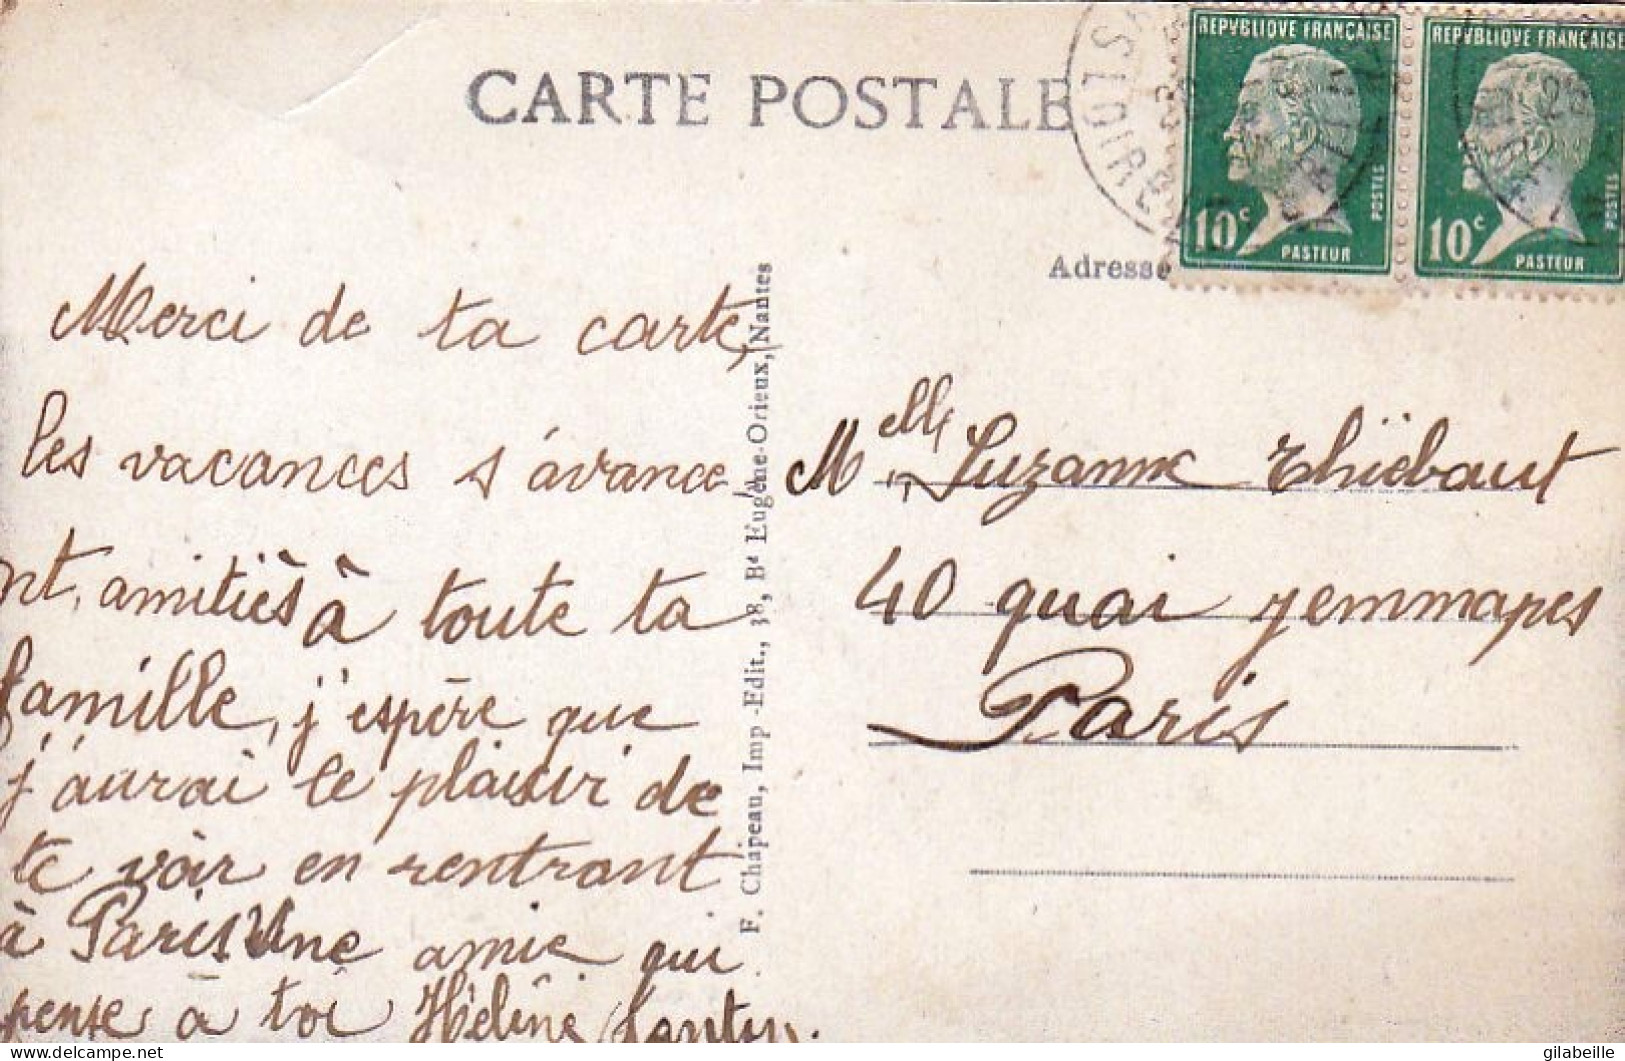 CARTE POSTALE
REPVBLIQVE FRANÇAISE
10c
POSTES
PASTEUR
REPVBLIQVE FRANÇAISE
10c
POSTES
PASTEUR
Adresse
Merci de ta carte,
les vacances s'avance
nt, amitiès à toute ta
famille, j'espère que
j'aurai le plaisir de
te voir en rentrant
à Paris Une amie qui
pense à toi Hélène
F. Chapeau, Imp.-Edit., 38, Bd Eugène-Orieux, Nantes
Melle Suzanne Thiébaut
40 quai Jemmapes
Paris
delcampe.net
gilabeille